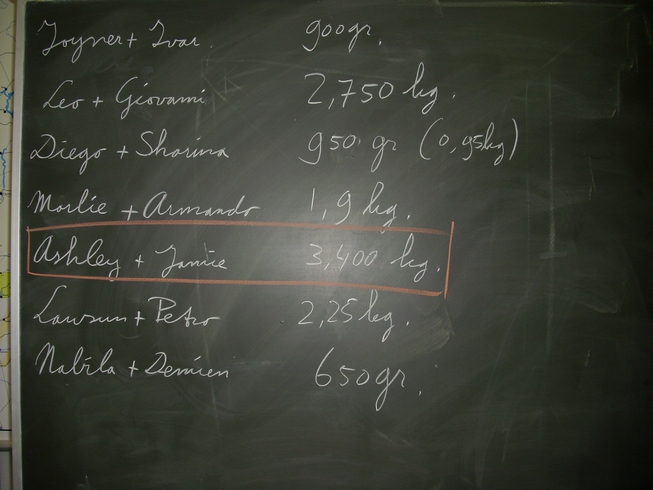 Joyner + Ivar. 900gr.
Leo + Giovanni 2,750 kg.
Diego + Sharina 950 gr (0,95kg)
Morlie + Armando 1,9 kg.
Ashley + Jamie 3,400 kg.
Lawsun + Petro 2,25kg.
Nabila + Demien 650gr.